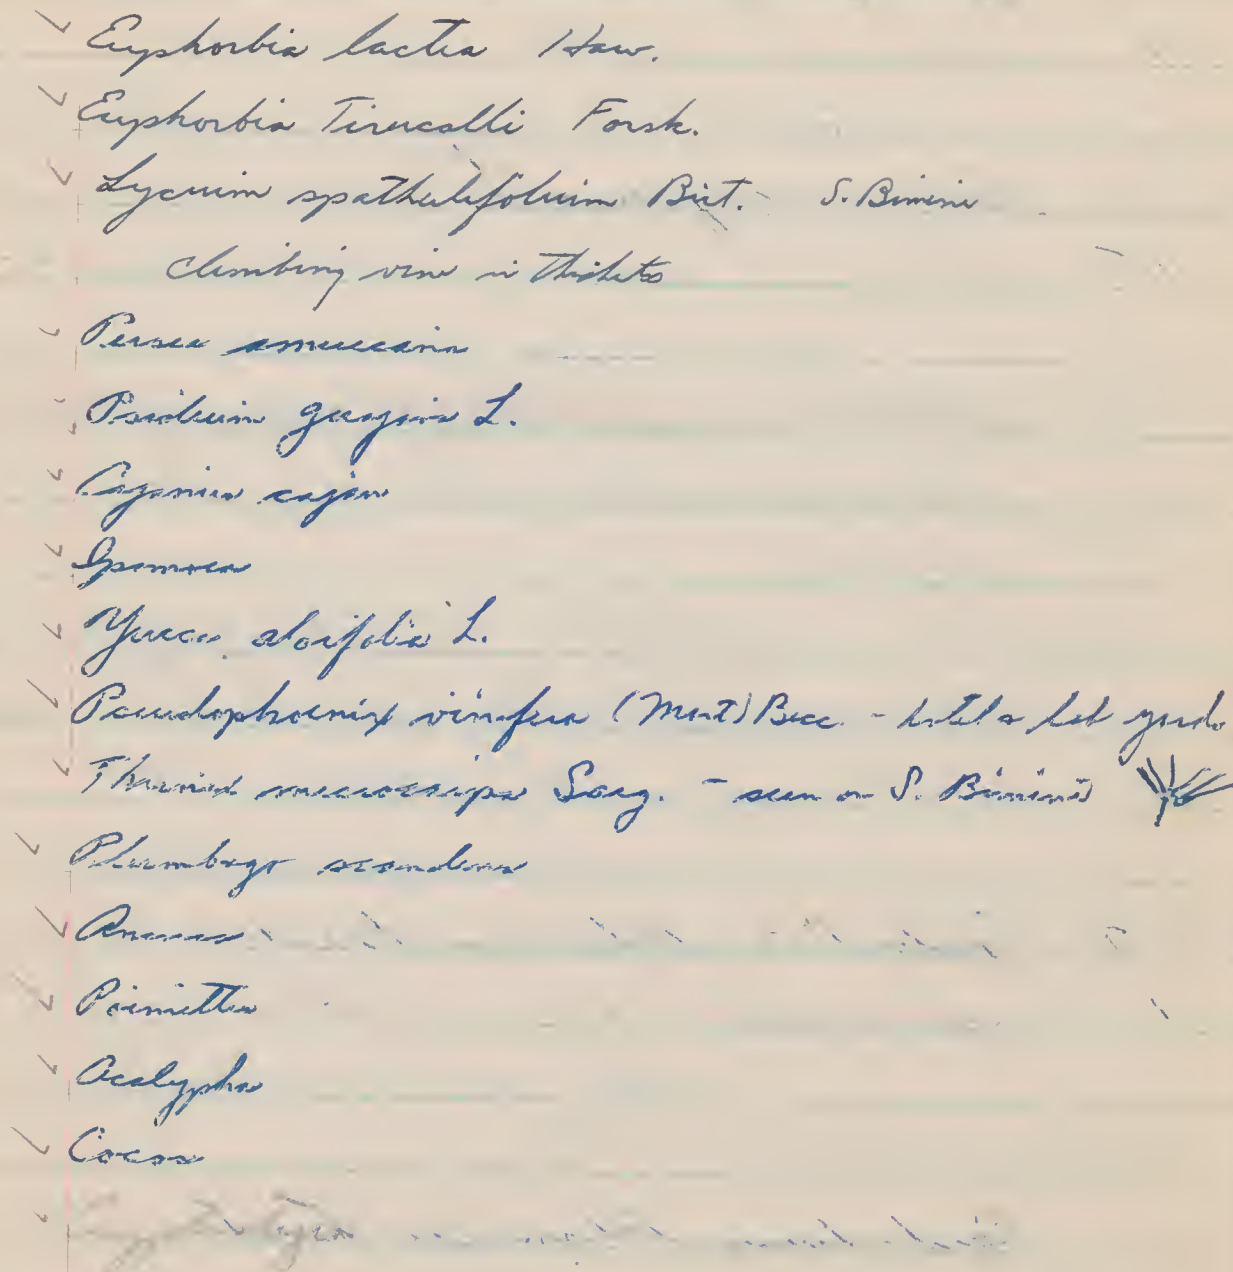 Euphorbia lactea Haw.
Euphorbia Tirucalli Forsk.
Lycium spathulifolium Brit. S. Bimini
climbing vine in thickets
Persea americana
Psidium guajava L.
Cajanus cajan
Ipomoea
Yucca aloifolia L.
Pseudophoenix vinifera (Mart) Becc. -
Thrinax microcarpa Sarg. - seen on S. Bimini
Plumbago scandens
Ananas
Poinsettia
Acalypha
Cocos